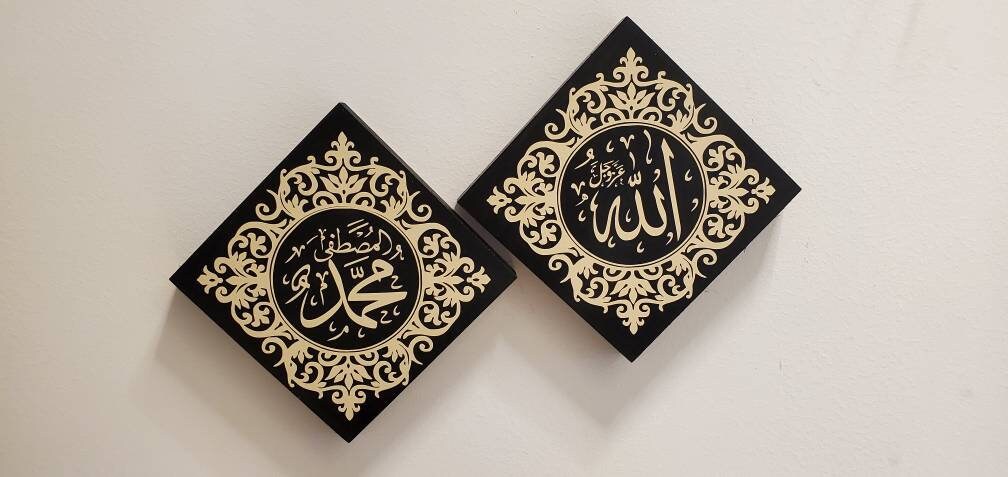 الله
عز وجل
المصطفى
محمد